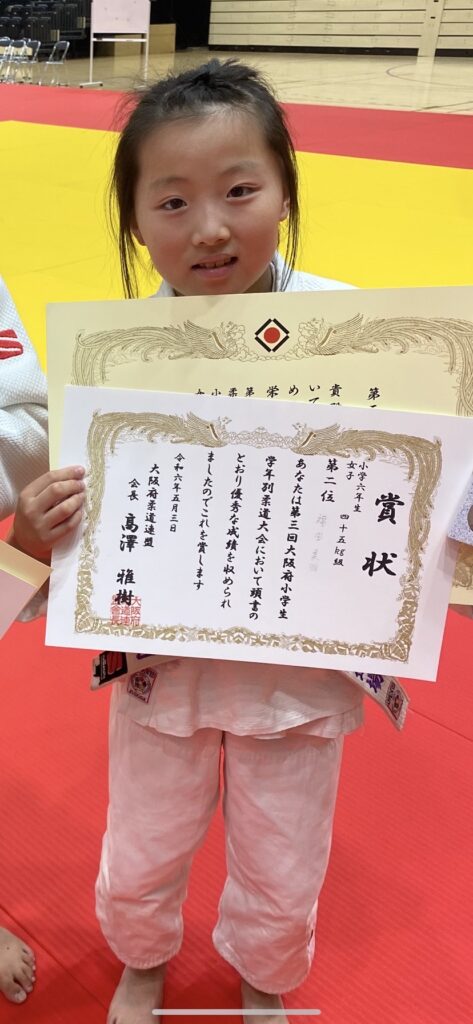 賞状
小学六年生
女子
四十五kg級
第二位
あなたは第三回大阪府小学生
学年別柔道大会において頭書の
とおり優秀な成績を収められ
ましたのでこれを賞します
令和六年五月三日
大阪府柔道連盟
会長 髙澤 雅樹